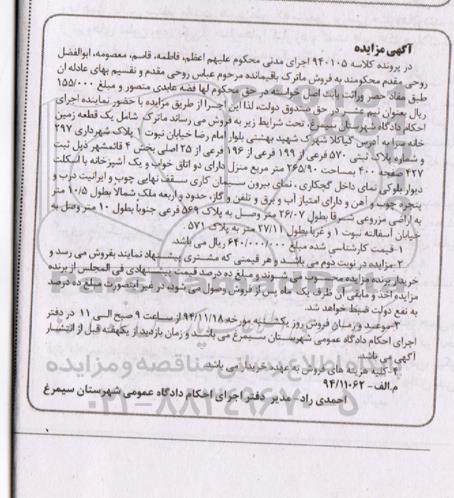 آگهی مزایده
در پرونده کلاسه ۹۴۰۱۰۵ اجرای مدنی محکوم علیهم اعظم، فاطمه، قاسم، معصومه، ابوالفضل
روحی مقدم محکومند به فروش ماترک باقیمانده مرحوم عباس روحی مقدم و تقسیم بهای عادله آن
طبق مفاد حصر وراثت بابت اصل خواسته در حق محکوم لها فضه عابدی منصور و مبلغ ۱۵۵/۰۰۰
ریال بعنوان نیم عشر در حق صندوق دولت، لذا این اجرا از طریق مزایده با حضور نماینده اجرای
احکام دادگاه شهرستان سیمرغ، تحت شرایط زیر به فروش می رساند ماترک شامل یک قطعه زمین
خانه سرا به آدرس کیاکلا شهرک شهید بهشتی بلوار امام رضا خیابان نبوت ۱ پلاک شهرداری ۲۹۷
و شماره پلاک ثبتی ۵۷۰ فرعی از ۱۹۹ فرعی از ۱۹۶ فرعی از ۲۵ اصلی بخش ۴ قائمشهر ذیل ثبت
۴۲۷ صفحه ۴۰۰ بمساحت ۲۶۵/۹۰ متر مربع منزل دارای دو اتاق خواب و یک آشپزخانه با اسکلت
دیوار بلوکی نمای داخل گچکاری، نمای بیرون سیمان کاری سقف نهایی چوب و ایرانیت درب و
پنجره چوب و آهن و دارای امتیاز آب و برق و تلفن و گاز، حدود و اربعه ملک شمالا بطول ۱۰/۵ متر
به اراضی مزروعی شرقا بطول ۲۶/۰۷ متر وصل به پلاک ۵۶۹ فرعی جنوبا بطول ۱۰ متر وصل به
خیابان آسفالته نبوت ۱ و غربا بطول ۲۷/۱۱ متر به پلاک ۵۷۱.
۱-قیمت کارشناسی شده مبلغ ۶۴۰/۰۰۰/۰۰۰ ریال می باشد.
۲-مزایده در نوبت دوم می باشد و هر قیمتی که مشتری پیشنهاد نمایند بفروش می رسد و
خریدار برنده مزایده محسوب می شوند و مبلغ ده درصد قیمت پیشنهادی فی المجلس از برنده
مزایده اخذ و مابقی آن ظرف یک ماه پس از فروش وصول می شود، در غیر اینصورت مبلغ ده درصد
به نفع دولت ضبط خواهد شد.
۳-موعد و زمان فروش روز یکشنبه مورخه ۹۴/۱۱/۱۸ از ساعت ۹ صبح الی ۱۱ در دفتر
اجرای احکام دادگاه عمومی شهرستان سیمرغ می باشد و زمان بازدید از یکهفته قبل از انتشار
آگهی می باشد.
۴-کلیه هزینه های فروش به عهده خریدار می باشد.
م.الف - ۹۴/۱۱۰۶۲
احمدی راد- مدیر دفتر اجرای احکام دادگاه عمومی شهرستان سیمرغ